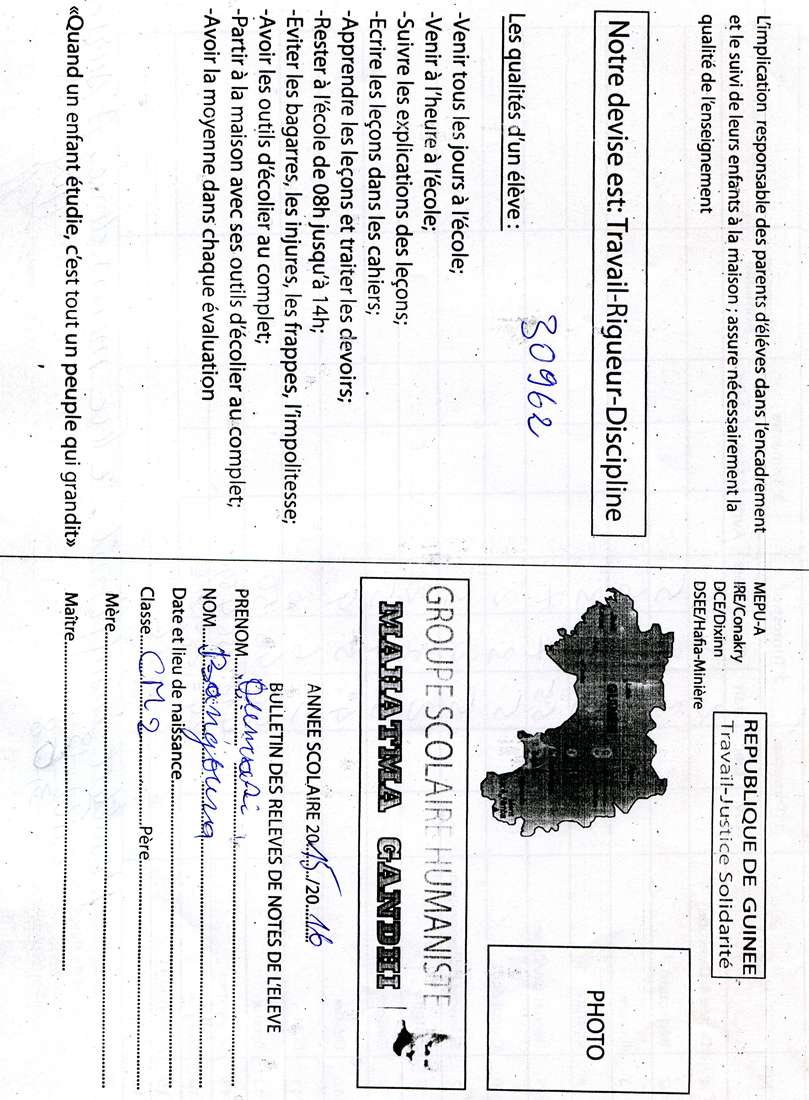 L'implication responsable des parents d'éléves dans l'encadrement
et le suivi de leurs enfants à la maison ; assure nécessairement la
qualité de l'enseignement
Notre devise est: Travail-Rigueur-Discipline
Les qualités d'un élève :
30962
-Venir tous les jours à l'école;
-Venir à l'heure à l'école;
-Suivre les explications des leçons;
-Ecrire les leçons dans les cahiers;
-Apprendre les leçons et traiter les devoirs;
-Rester à l'école de 08h jusqu'à 14h;
-Eviter les bagarres, les injures, les frappes, l'impolitesse;
-Avoir les outils d'écolier au complet;
-Partir à la maison avec ses outils d'écolier au complet;
-Avoir la moyenne dans chaque évaluation
«Quand un enfant étudie, c'est tout un peuple qui grandit»
MEPU-A
IRE/Conakry
DCE/Dixinn
DSEE/Hafia-Minière
REPUBLIQUE DE GUINEE
Travail-Justice Solidarité
PHOTO
GROUPE SCOLAIRE HUMANISTE
MAHATMA GANDHI
ANNEE SCOLAIRE 2015/2016
BULLETIN DES RELEVES DE NOTES DE L'ELEVE
PRENOM
NOM Bangoura
Date et lieu de naissance
Classe CM2 Père
Mère
Maître